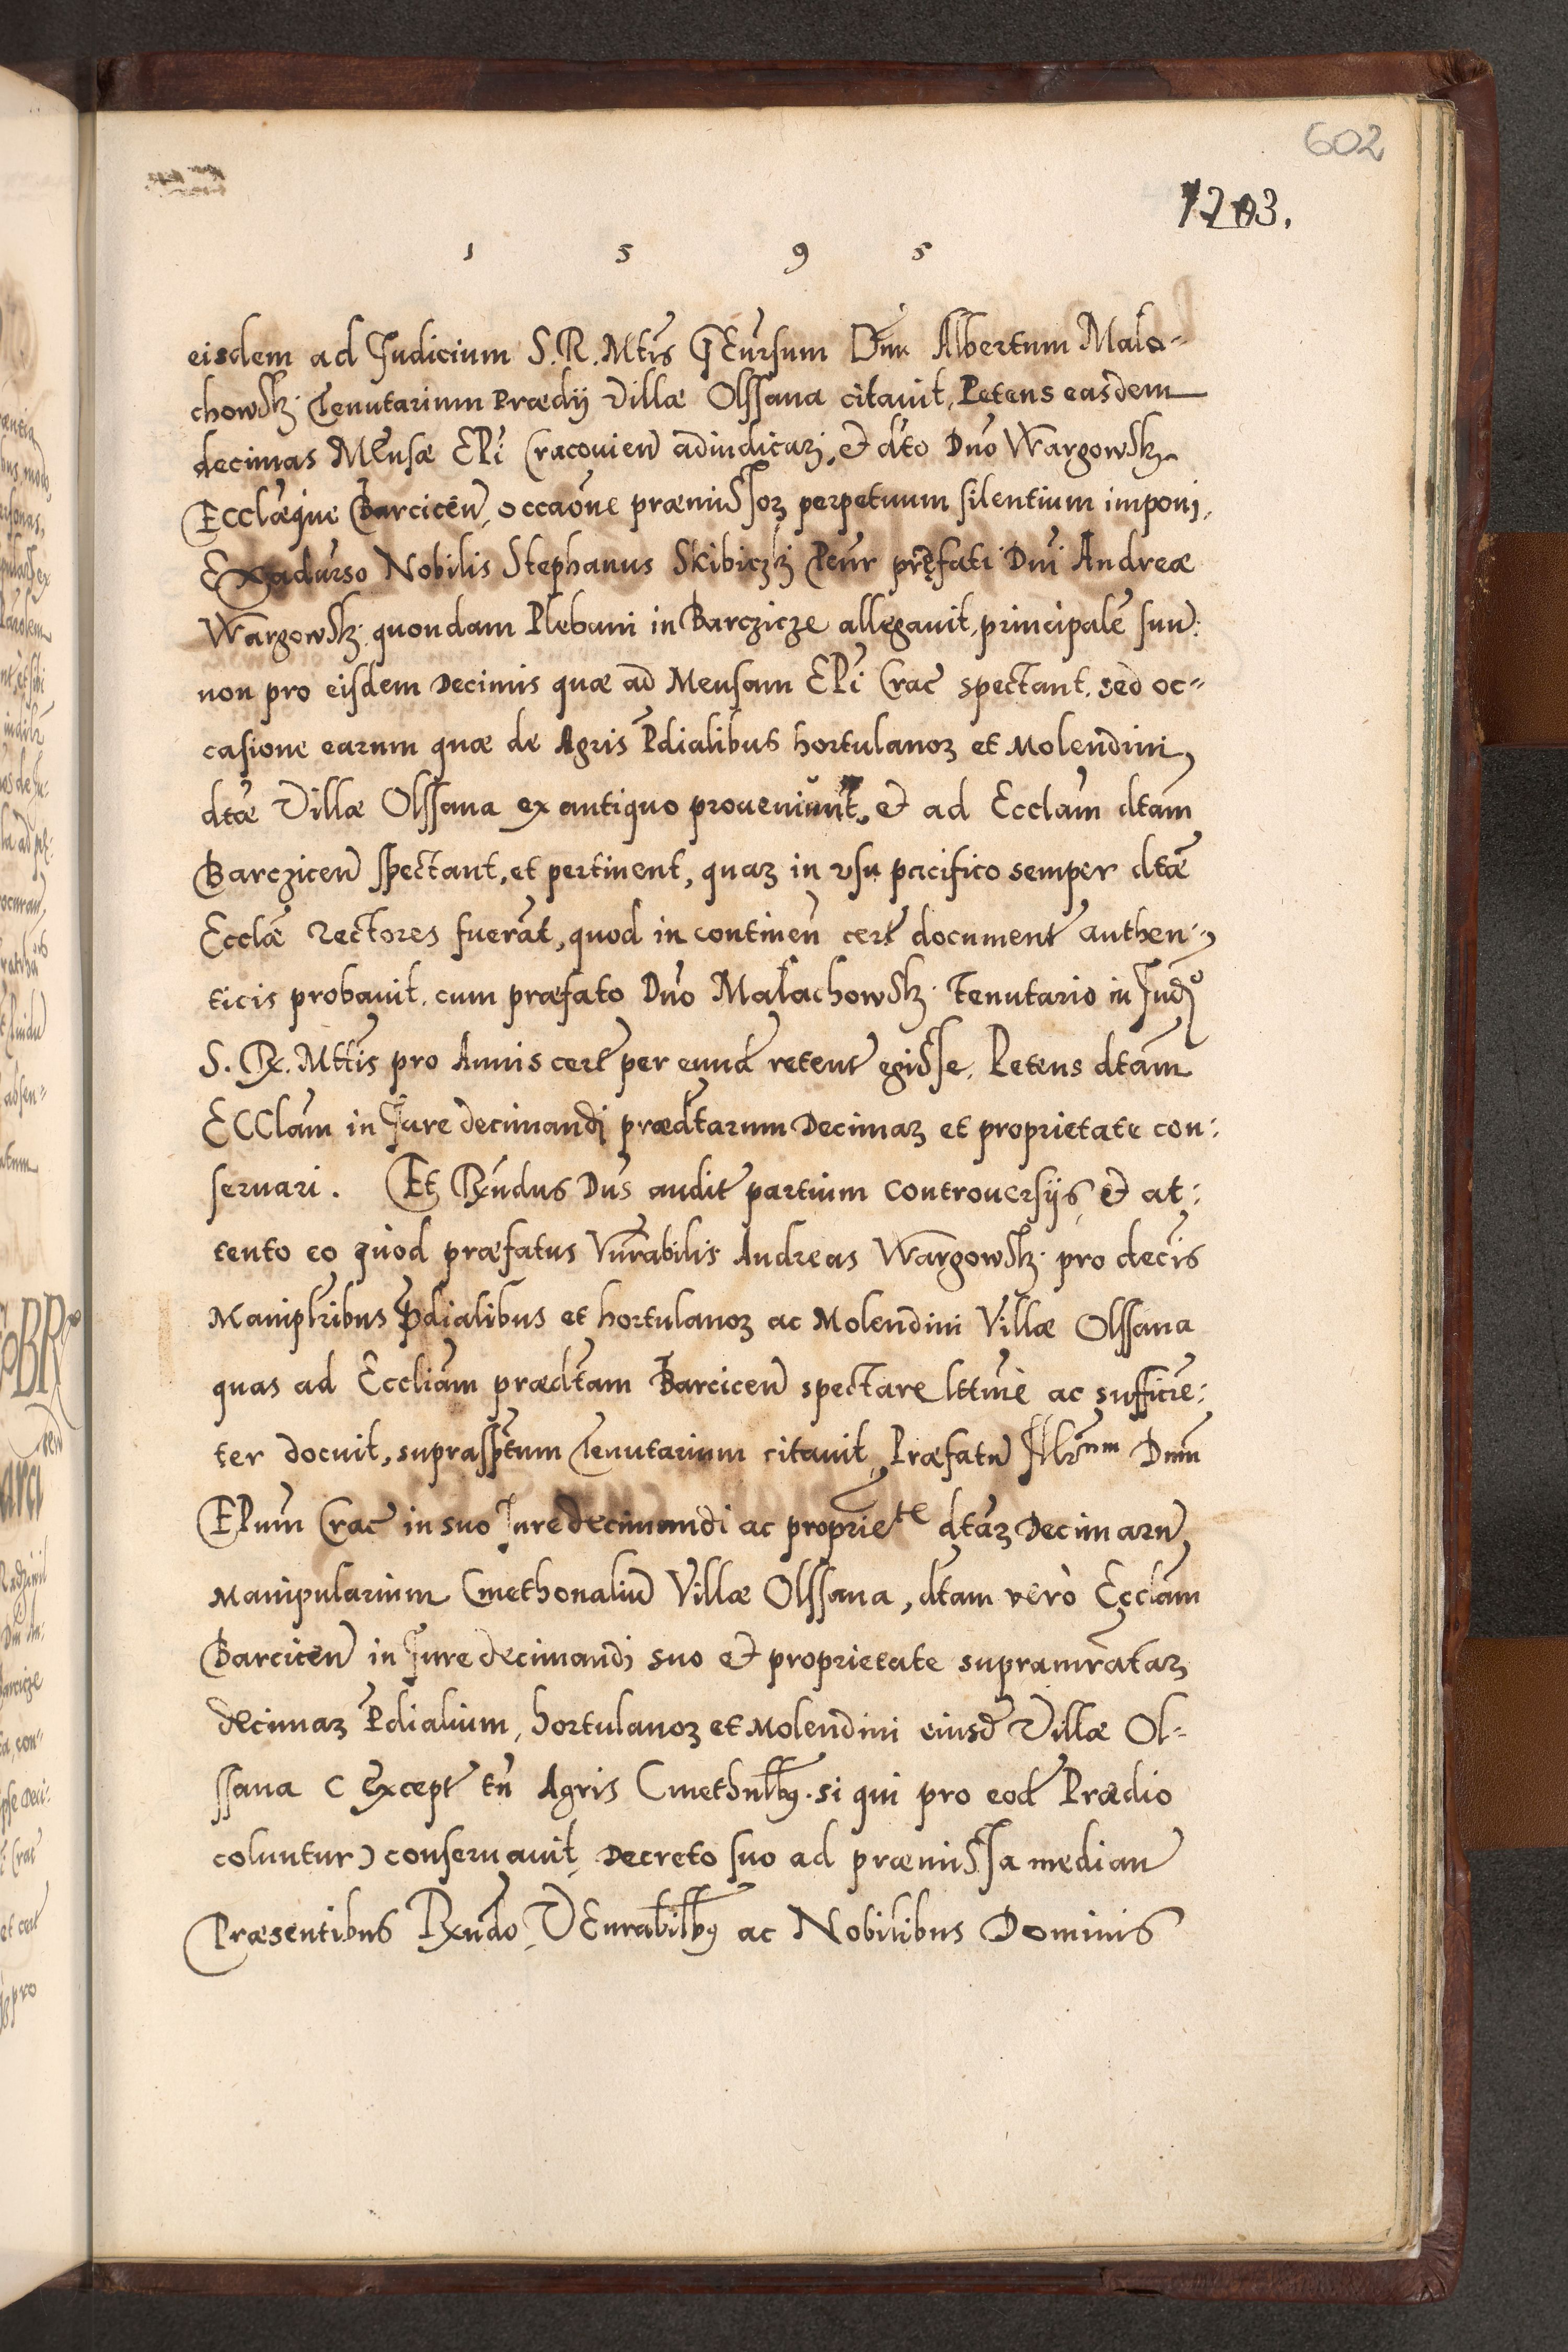 602
1203.
1 5 9 5
eisdem ad Judicium S. R. Mtis Dnm Albertum Mala-
chowsk: Tenutarium Prædij Villæ Olssana citauit, Petens easdem
decimas Mensæ EPi Cracouien adiudicari, et dto Dno Wargowsk.
Ecclæque Barcicen, occaone præmissoꝝ perpetuum silentium imponi,
Ex adurso Nobilis Stephanus Skibiczki Pcur pręfati Dni Andreæ
Wargowsk: quondam Plebani in Barczicze allegauit, principale suu:
non pro eisdem Decimis quæ ad Mensam EPi Crac spectant, sed oc-
casione earum quæ de Agris Pdialibus hortulanoꝝ et Molendini,
dtæ Villæ Olssana ex antiquo proueniunt, et ad Ecclam dtam
Barczicen spectant, et pertinent, quaꝝ in vsu pacifico semper dtæ
Ecclæ rectores fuerat, quod in continen cert document authen:
ticis probauit. cum præfato Dno Małachowsk: Tenutario in Judo
S. R. Mttis pro Annis cert per eund retent egisse, Petens dtam
ECClam in Jure decimandi prædtarum Decimaꝝ et proprietate con:
seruari. Et Rndus Dns audit partium controuersijs, et at:
tento eo quod præfatus Vnrabilis Andreas Wargowsk: pro decis
Maniplribus Pdialibus et hortulanoꝝ ac Molendini Villæ Olssana
quas ad Eccliam prædtam Barcicen spectare lttme ac sufficie:
ter docuit, suprassptum Tenutarium citauit, Præfatu Illrnum Dnm
EPum Crac in suo Jure decimandi ac propriete dtaꝝ Decimaru,
Manipularium Cmethonaliu Villæ Olssana, dtam verò Ecclam
Barcicen in Jure decimandi suo et proprietate supranrataꝝ
decimaꝝ Pdialium, hortulanoꝝ et Molendini eiusd Villæ Ol-
ssana ( except tn Agris Cmethnlbꝰ. si qui pro eod Prædio
coluntur) conseruauit, Decreto suo ad præmissa median
Præsentibus Rndo, VEnrabilbꝰ ac Nobilibus Dominis